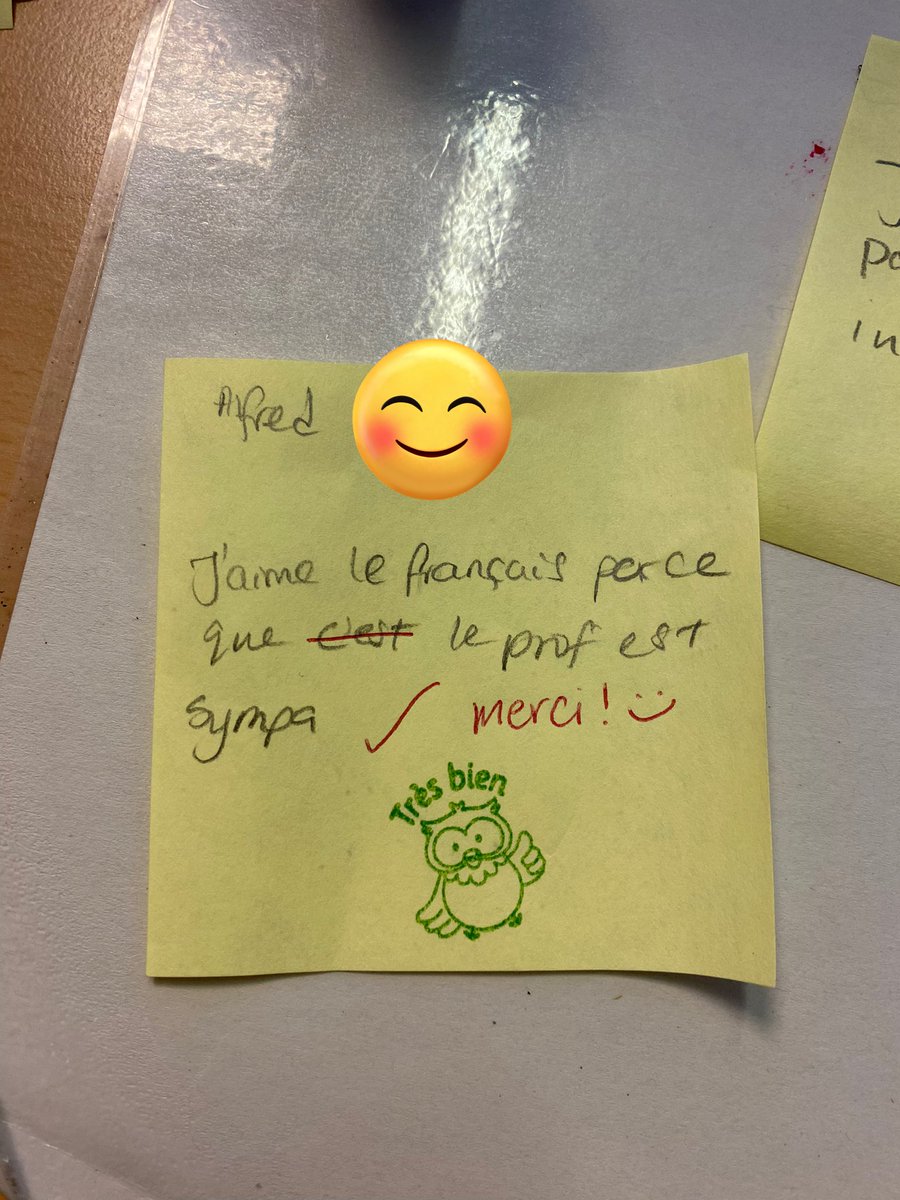 Alfred
J'aime le français perce
que c'est le prof est
sympa ✓ merci! :)
Très bien
J
Pa
in